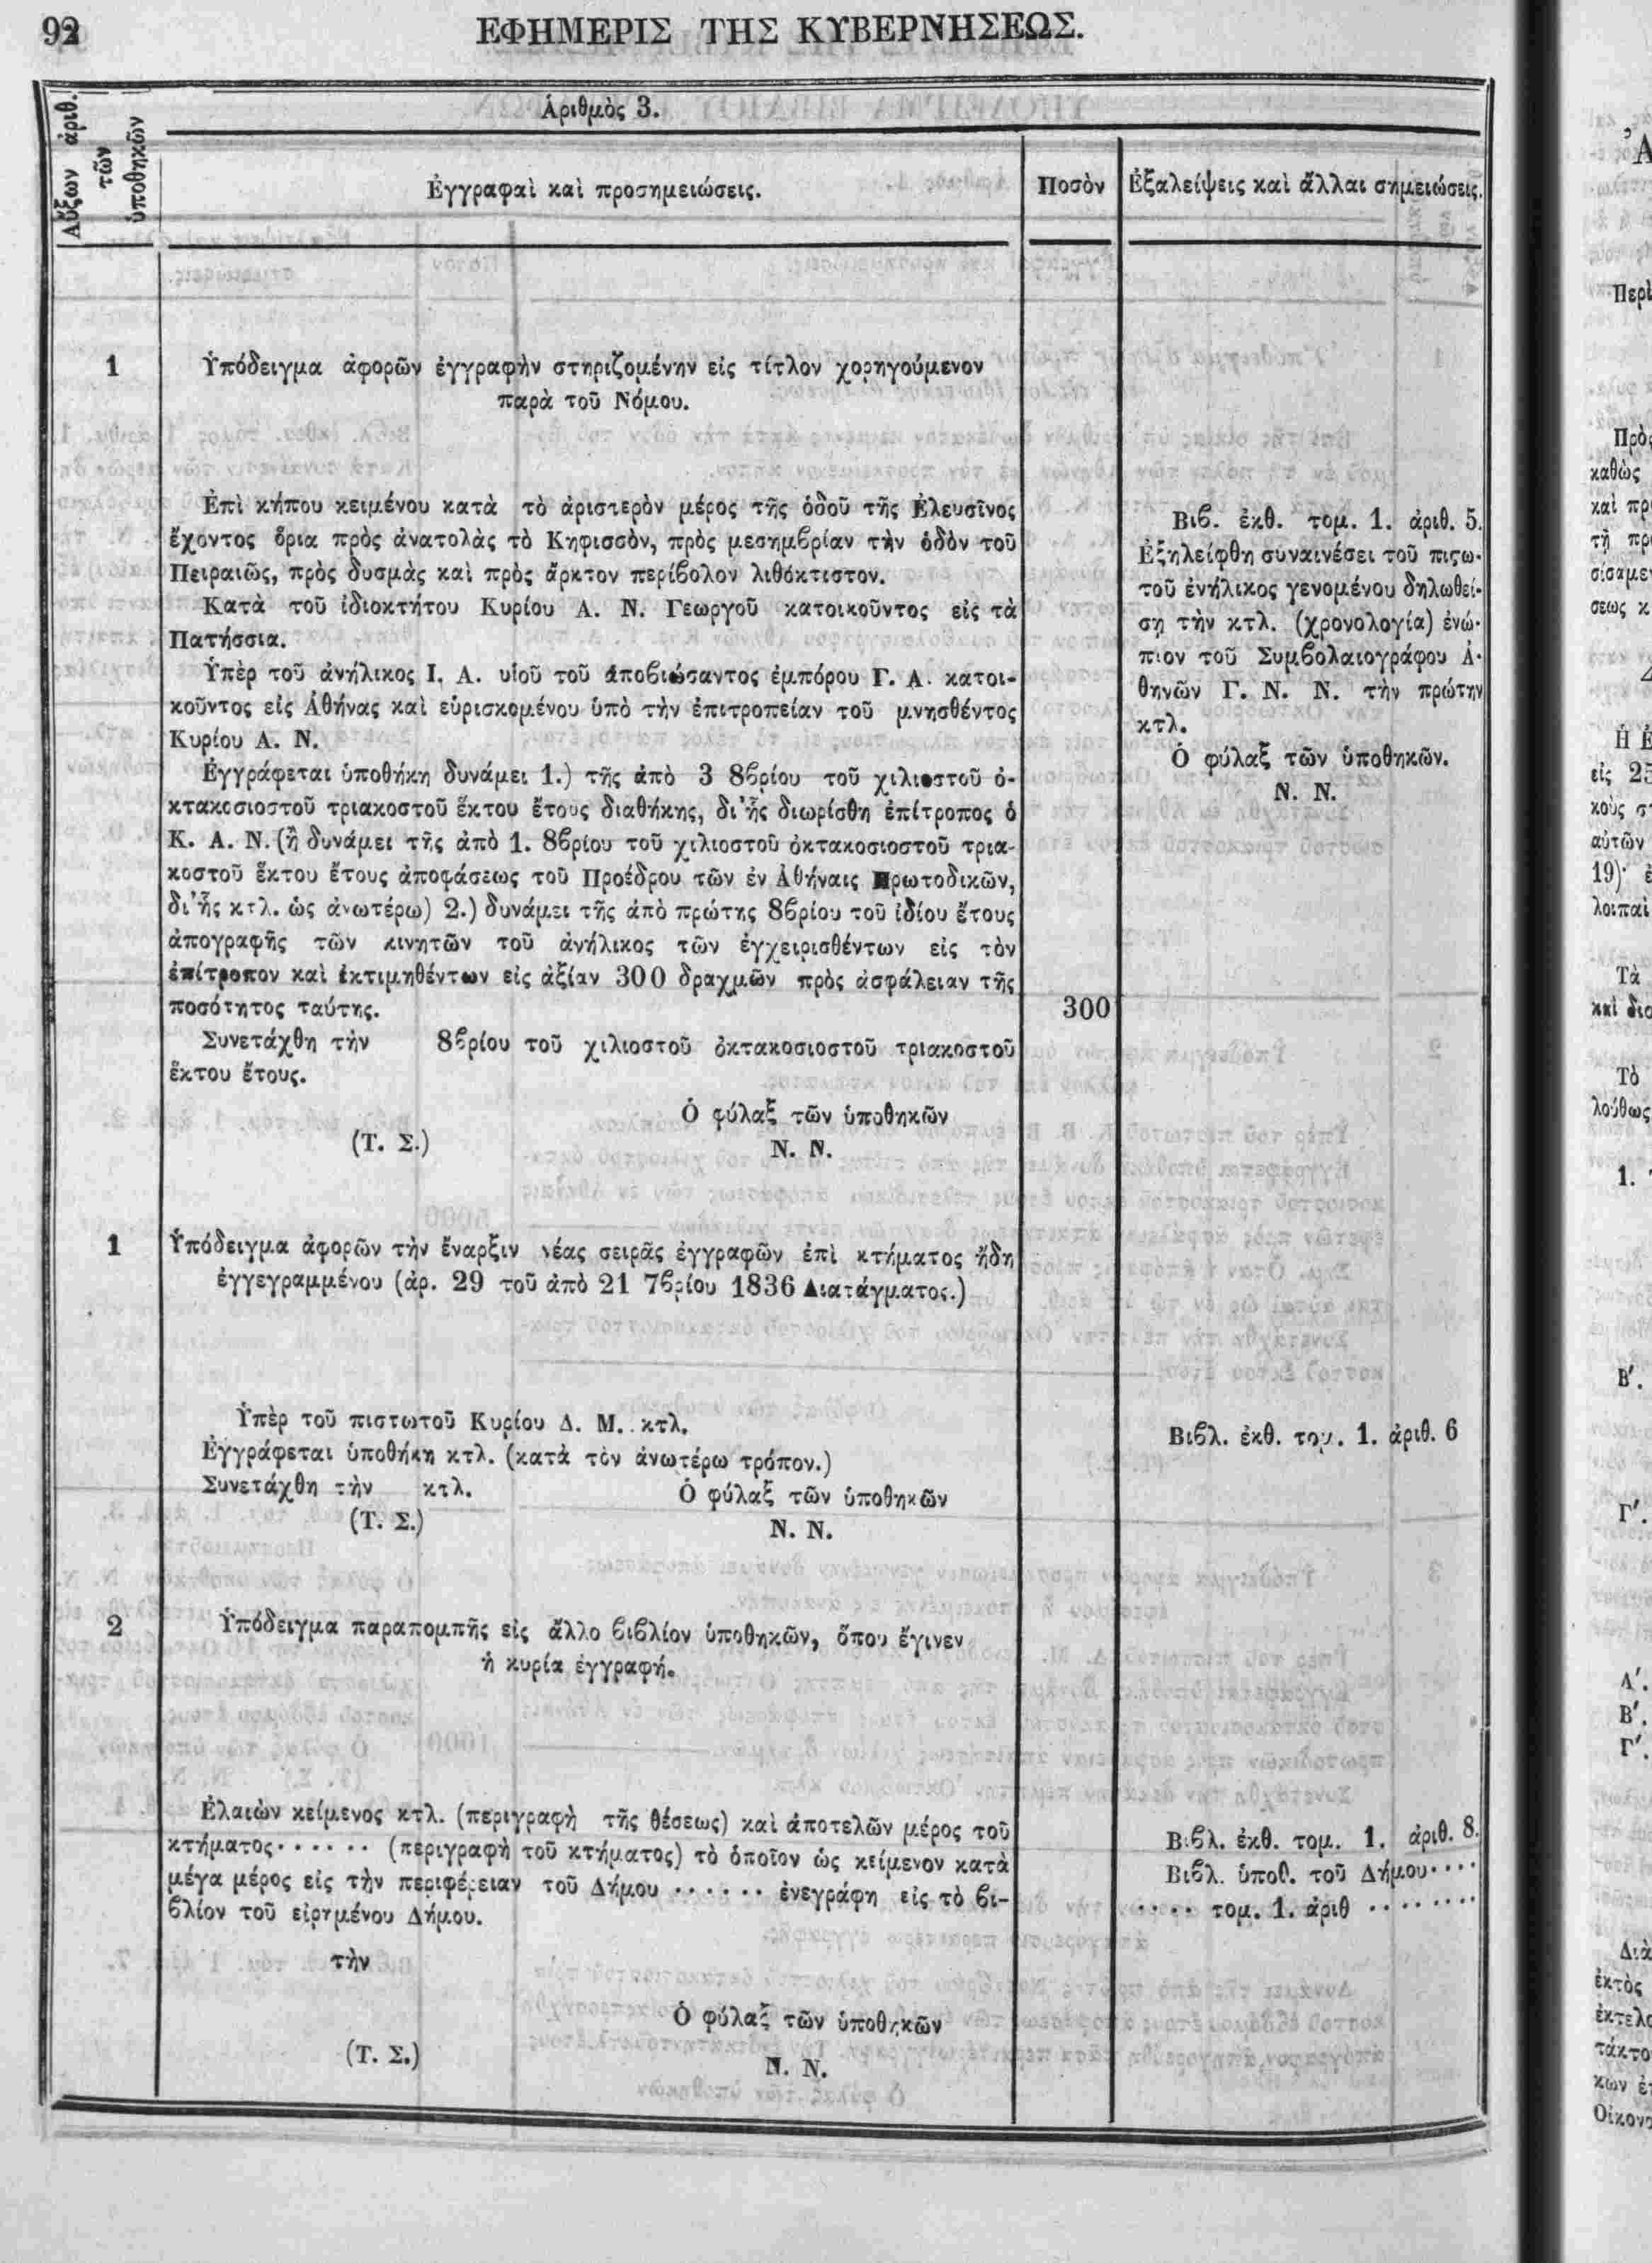 92
ΕΦΗΜΕΡΙΣ ΤΗΣ ΚΥΒΕΡΝΗΣΕΩΣ.
Αὔξων ἀριθ.
τῶν
ὑποθηκῶν
Ἀριθμὸς 3.
Ἐγγραφαὶ καὶ προσημειώσεις.
Ποσὸν
Ἐξαλείψεις καὶ ἄλλαι σημειώσεις.
1
Ὑπόδειγμα ἀφορῶν ἐγγραφὴν στηριζομένην εἰς τίτλον χορηγούμενον
παρὰ τοῦ Νόμου.
Ἐπὶ κήπου κειμένου κατὰ τὸ ἀριστερὸν μέρος τῆς ὁδοῦ τῆς Ἐλευσῖνος
ἔχοντος ὅρια πρὸς ἀνατολὰς τὸ Κηφισσὸν, πρὸς μεσημβρίαν τὴν ὁδὸν τοῦ
Πειραιῶς, πρὸς δυσμὰς καὶ πρὸς ἄρκτον περίβολον λιθόκτιστον.
Κατὰ τοῦ ἰδιοκτήτου Κυρίου Α. Ν. Γεωργοῦ κατοικοῦντος εἰς τὰ
Πατήσσια.
Ὑπὲρ τοῦ ἀνήλικος Ι. Α. υἱοῦ τοῦ ἀποβιώσαντος ἐμπόρου Γ. Α. κατοι-
κοῦντος εἰς Ἀθήνας καὶ εὑρισκομένου ὑπὸ τὴν ἐπιτροπείαν τοῦ μνησθέντος
Κυρίου Α. Ν.
Ἐγγράφεται ὑποθήκη δυνάμει 1.) τῆς ἀπὸ 3 8βρίου τοῦ χιλιοστοῦ ὀ-
κτακοσιοστοῦ τριακοστοῦ ἕκτου ἔτους διαθήκης, δι’ ἧς διωρίσθη ἐπίτροπος ὁ
Κ. Α. Ν. (ἢ δυνάμει τῆς ἀπὸ 1. 8βρίου τοῦ χιλιοστοῦ ὀκτακοσιοστοῦ τρια-
κοστοῦ ἕκτου ἔτους ἀποφάσεως τοῦ Προέδρου τῶν ἐν Ἀθήναις Πρωτοδικῶν,
δι’ ἧς κτλ. ὡς ἀνωτέρω) 2.) δυνάμει τῆς ἀπὸ πρώτης 8βρίου τοῦ ἰδίου ἔτους
ἀπογραφῆς τῶν κινητῶν τοῦ ἀνήλικος τῶν ἐγχειρισθέντων εἰς τὸν
ἐπίτροπον καὶ ἐκτιμηθέντων εἰς ἀξίαν 300 δραχμῶν πρὸς ἀσφάλειαν τῆς
ποσότητος ταύτης.
300
Συνετάχθη τὴν 8βρίου τοῦ χιλιοστοῦ ὀκτακοσιοστοῦ τριακοστοῦ
ἕκτου ἔτους.
Ὁ φύλαξ τῶν ὑποθηκῶν
(Τ. Σ.) Ν. Ν.
Βιβ. ἐκθ. τομ. 1. ἀριθ. 5.
Ἐξηλείφθη συναινέσει τοῦ πιστω-
τοῦ ἐνήλικος γενομένου δηλωθεί-
σῃ τὴν κτλ. (χρονολογία) ἐνώ-
πιον τοῦ Συμβολαιογράφου Ἀ-
θηνῶν Γ. Ν. Ν. τὴν πρώτην
κτλ.
Ὁ φύλαξ τῶν ὑποθηκῶν.
Ν. Ν.
1
Ὑπόδειγμα ἀφορῶν τὴν ἔναρξιν νέας σειρᾶς ἐγγραφῶν ἐπὶ κτήματος ἤδη
ἐγγεγραμμένου (ἀρ. 29 τοῦ ἀπὸ 21 7βρίου 1836 Διατάγματος.)
Ὑπὲρ τοῦ πιστωτοῦ Κυρίου Δ. Μ. κτλ.
Ἐγγράφεται ὑποθήκη κτλ. (κατὰ τὸν ἀνωτέρω τρόπον.)
Συνετάχθη τὴν κτλ. Ὁ φύλαξ τῶν ὑποθηκῶν
(Τ. Σ.) Ν. Ν.
Βιβλ. ἐκθ. τομ. 1. ἀριθ. 6
2
Ὑπόδειγμα παραπομπῆς εἰς ἄλλο βιβλίον ὑποθηκῶν, ὅπου ἔγινεν
ἡ κυρία ἐγγραφή.
Ἐλαιὼν κείμενος κτλ. (περιγραφὴ τῆς θέσεως) καὶ ἀποτελῶν μέρος τοῦ
κτήματος······ (περιγραφὴ τοῦ κτήματος) τὸ ὁποῖον ὡς κείμενον κατὰ
μέγα μέρος εἰς τὴν περιφέρειαν τοῦ Δήμου ······ ἐνεγράφη εἰς τὸ βι-
βλίον τοῦ εἰρημένου Δήμου.
τὴν
Ὁ φύλαξ τῶν ὑποθηκῶν
(Τ. Σ.) Ν. Ν.
Βιβλ. ἐκθ. τομ. 1. ἀριθ. 8.
Βιβλ. ὑποθ. τοῦ Δήμου····
···· τομ. 1. ἀριθ ·······